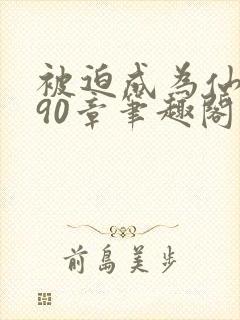 被迫成为仙
90章笔趣阁
前岛美步